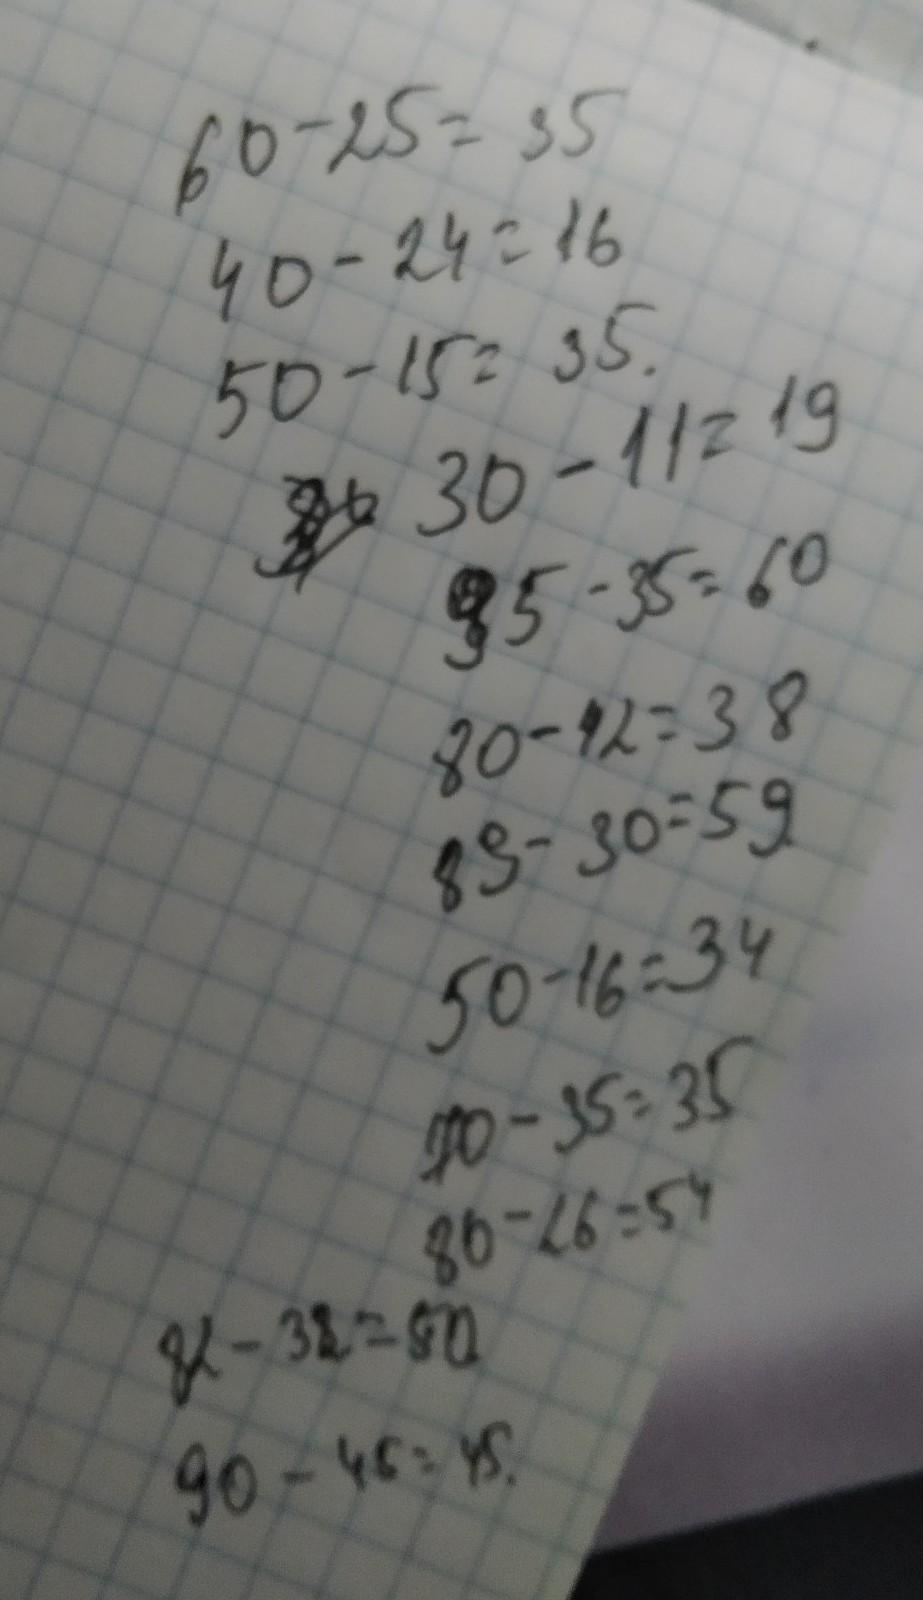 60-25=35
40-24=16
50-15=35.
30-11=19
95-35=60
80-42=38
89-30=59
50-16=34
70-35=35
80-26=54
82-32=50
90-45=45.